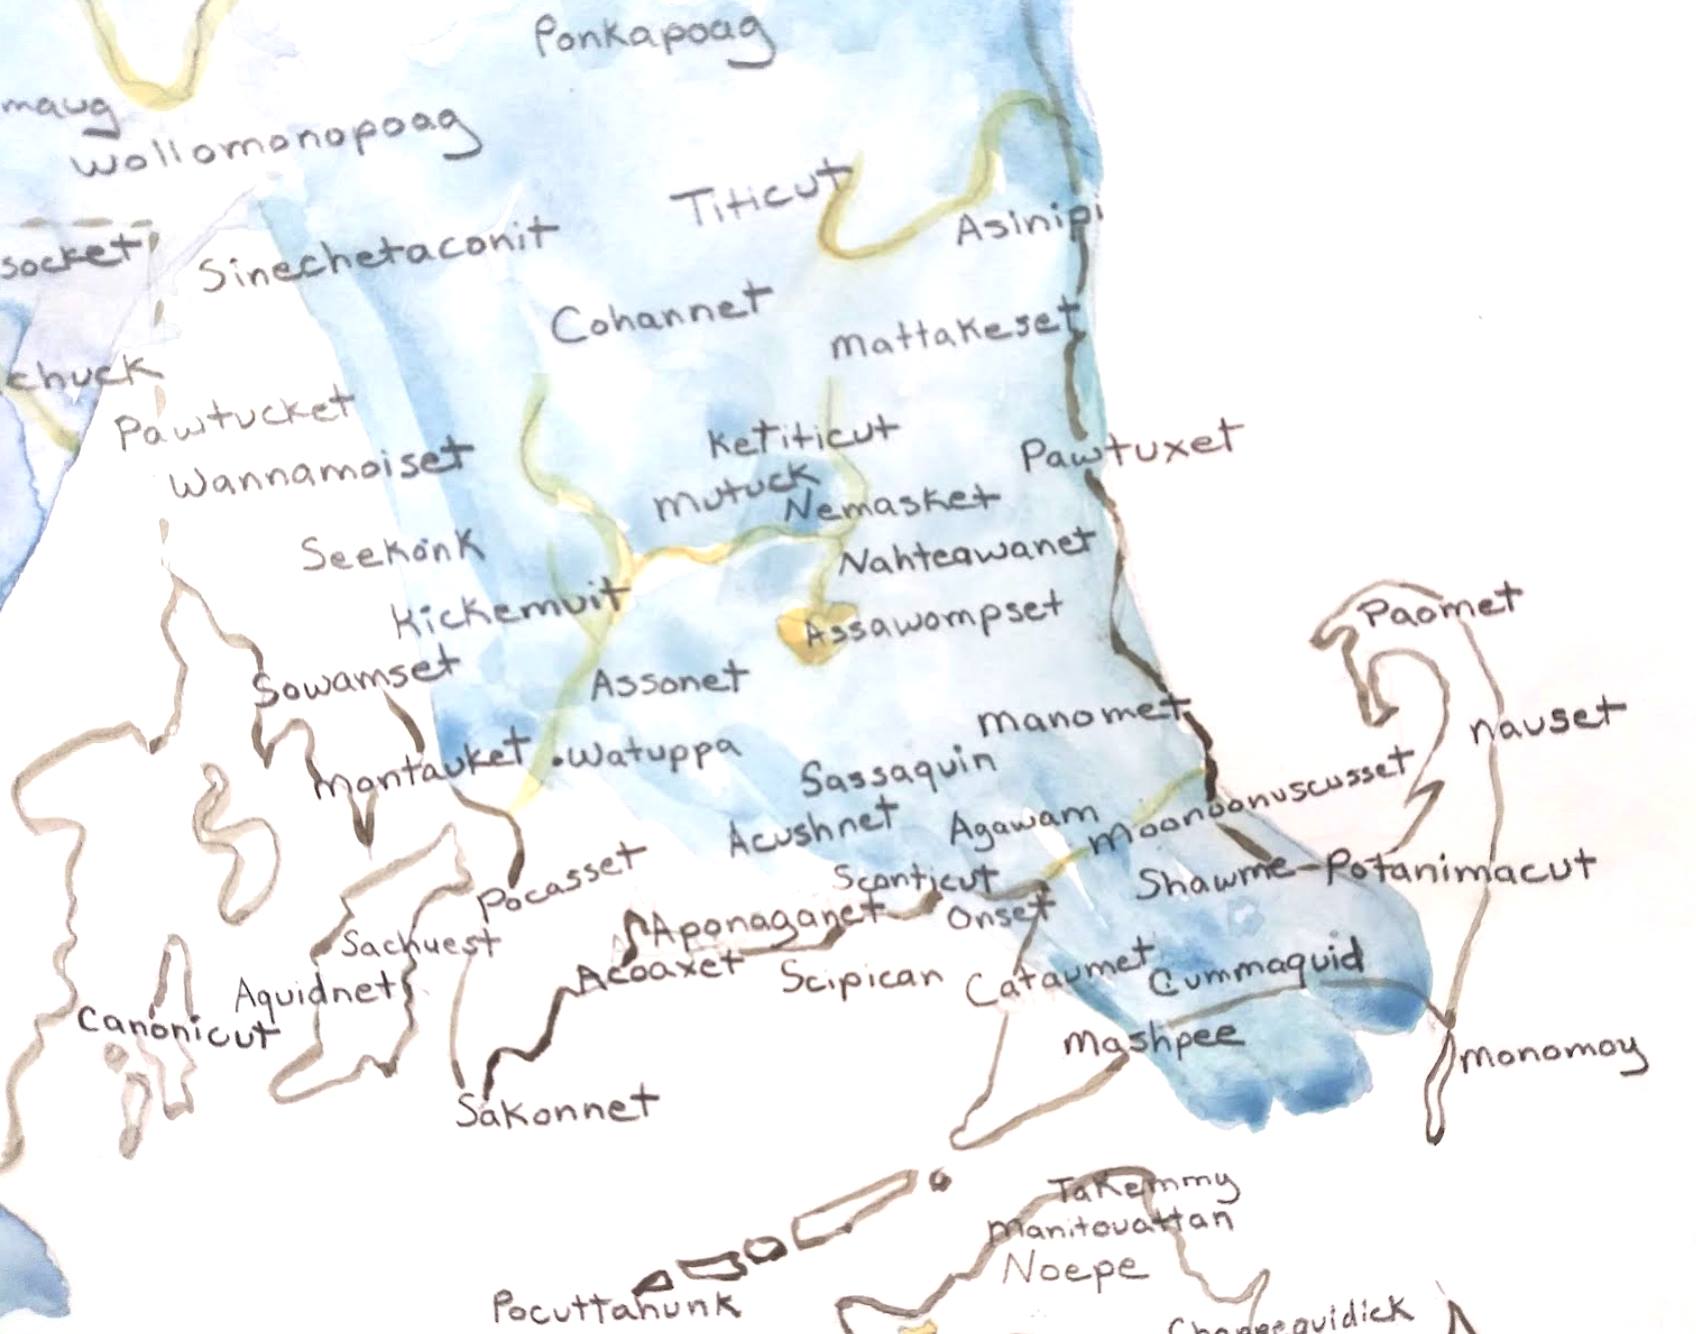 Ponkapoag
maug
Wollomonopoag
Titicut
Asinipi
socket
Sinechetaconit
Cohannet
Mattakeset
chuck
Pawtucket
Ketiticut
Pawtuxet
Wannamoiset
Mutuck
Nemasket
Seekonk
Nahteawanet
Kickemuit
Assawompset
Paomet
Sowamset
Assonet
Manomet
Nauset
Montauket
Watuppa
Sassaquin
Moonoonuscusset
Acushnet
Agawam
Pocasset
Sconticut
Shawme-Potanimacut
Aponaganet
Onset
Sachuest
Acoaxet
Scipican
Cataumet
Cummaquid
Aquidnet
Canonicut
Mashpee
Monomoy
Sakonnet
Takemmy
Manitouattan
Noepe
Pocuttahunk